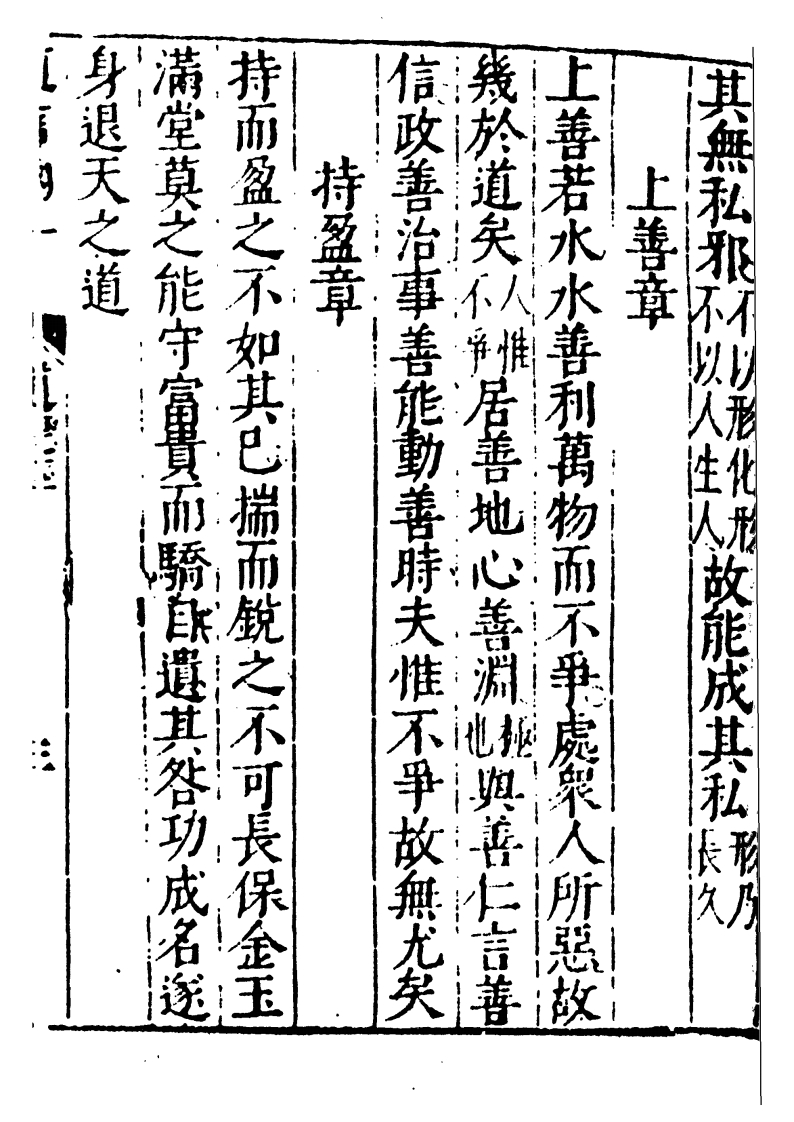 其無私邪不以形化形不以人生人故能成其私形乃長久
上善章
上善若水水善利萬物而不爭處衆人所惡故
幾於道矣人惟不爭居善地心善淵極也與善仁言善
信政善治事善能動善時夫惟不爭故無尤矣
持盈章
持而盈之不如其巳揣而銳之不可長保金玉
滿堂莫之能守富貴而驕自遺其咎功成名遂
身退天之道